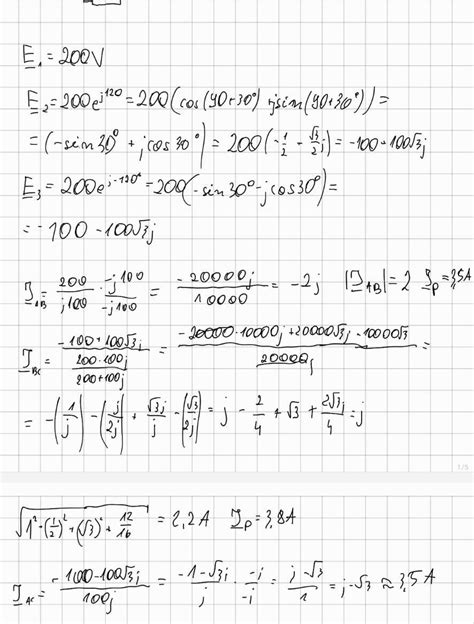 E₁ = 200V
E₂ = 200e^{j120} = 200(cos(90+30°) + jsin(90+30°)) =
= (-sin30° + jcos30°) = 200(-1/2 + √3/2 j) = -100+100√3j
E₃ = 200e^{j-120°} = 200(-sin30° - jcos30°) =
= -100 - 100√3j
I_AB = 200/j100 · -j100/-j100 = -20000j/10000 = -2j |I_AB| = 2 I_P = 3,5A
I_BC = (-100+100√3j)/(200·100j/(200+100j)) = (-20000-10000j+20000√3j-10000√3)/20000j =
= -(1/j) - (j/2j) + √3j/j - (√3/2j) = j - 2/4 + √3 + 2√3j/4 = j
1/5
√(1² + (1/2)² + (√3)² + 12/16) = 2,2A I_P = 3,8A
I_AC = (-100-100√3j)/100j = (-1-√3j)/j · -j/-j = (j-√3)/1 = j-√3 ≈ 3,5A